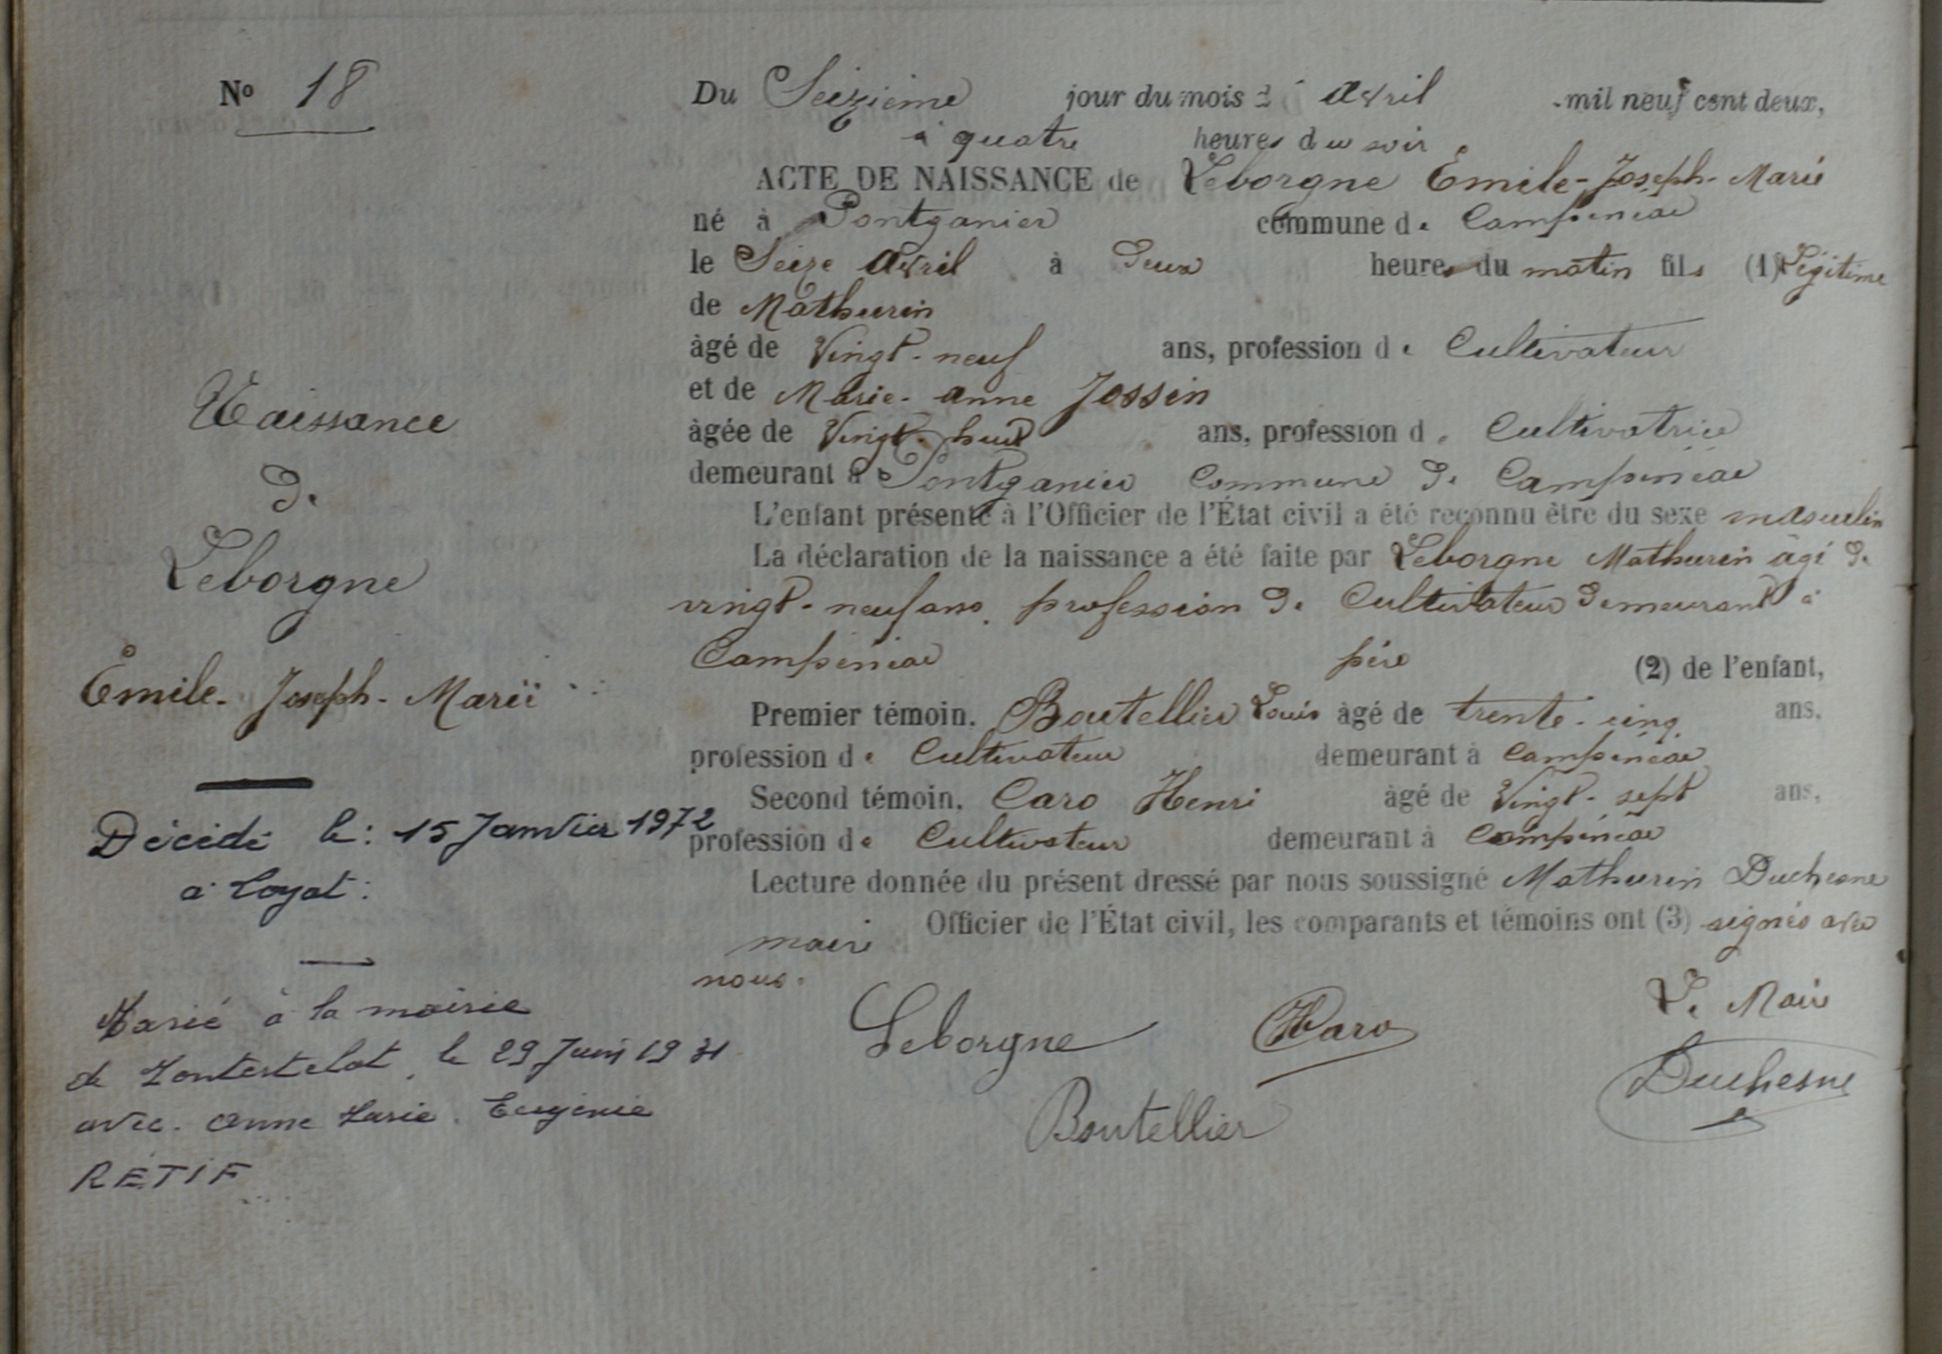 Nº 18
Naissance
de
Leborgne
Émile-Joseph-Marie
Décédé le: 15 Janvier 1972
à Loyat:
Marié à la mairie
de Montertelot, le 29 Juin 1931
avec Anne Marie Eugénie
RÉTIF
Du Seizième jour du mois d' Avril mil neuf cent deux,
à quatre heures du soir
ACTE DE NAISSANCE de Leborgne Émile-Joseph-Marie
né à Pontganier commune de Campénéac
le Seize Avril à deux heures du matin fils (1) Légitime
de Mathurin
âgé de Vingt-neuf ans, profession de Cultivateur
et de Marie-Anne Jossin
âgée de Vingt-huit ans, profession de Cultivatrice
demeurant à Pontganier Commune de Campénéac
L'enfant présenté à l'Officier de l'État civil a été reconnu être du sexe masculin
La déclaration de la naissance a été faite par Leborgne Mathurin âgé de
vingt-neuf ans, profession de Cultivateur demeurant à
Campénéac père (2) de l'enfant,
Premier témoin. Boutellier Louis âgé de trente-cinq ans,
profession de Cultivateur demeurant à Campénéac
Second témoin. Caro Henri âgé de Vingt-sept ans,
profession de Cultivateur demeurant à Campénéac
Lecture donnée du présent dressé par nous soussigné Mathurin Duchesne
maire Officier de l'État civil, les comparants et témoins ont (3) signés avec
nous.
Le Maire
Leborgne HCaro
Duchesne
Boutellier